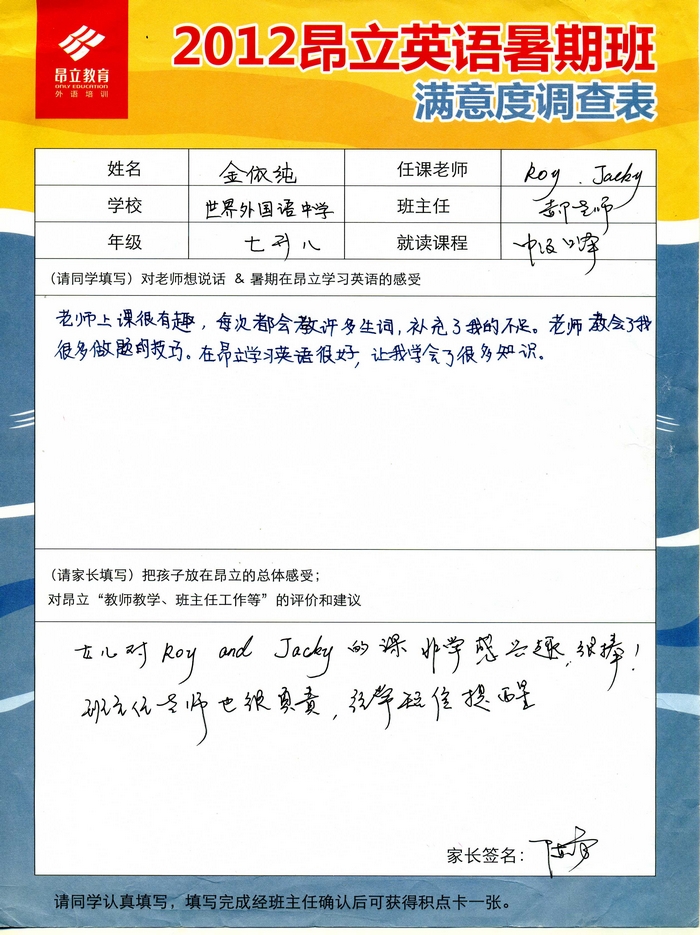 昂立教育
ONLY EDUCATION
外语培训
2012昂立英语暑期班
满意度调查表
姓名 金依纯 任课老师 Roy . Jacky
学校 世界外国语中学 班主任 郝老师
年级 七升八 就读课程 中级口译
(请同学填写) 对老师想说话 & 暑期在昂立学习英语的感受
老师上课很有趣，每次都会教许多生词，补充了我的不足。老师教会了我
很多做题的技巧。在昂立学习英语很好，让我学会了很多知识。
(请家长填写) 把孩子放在昂立的总体感受；
对昂立“教师教学、班主任工作等”的评价和建议
女儿对 Roy and Jacky 的课非常感兴趣，很棒！
班主任老师也很负责，经常短信提醒
家长签名：
请同学认真填写，填写完成经班主任确认后可获得积点卡一张。